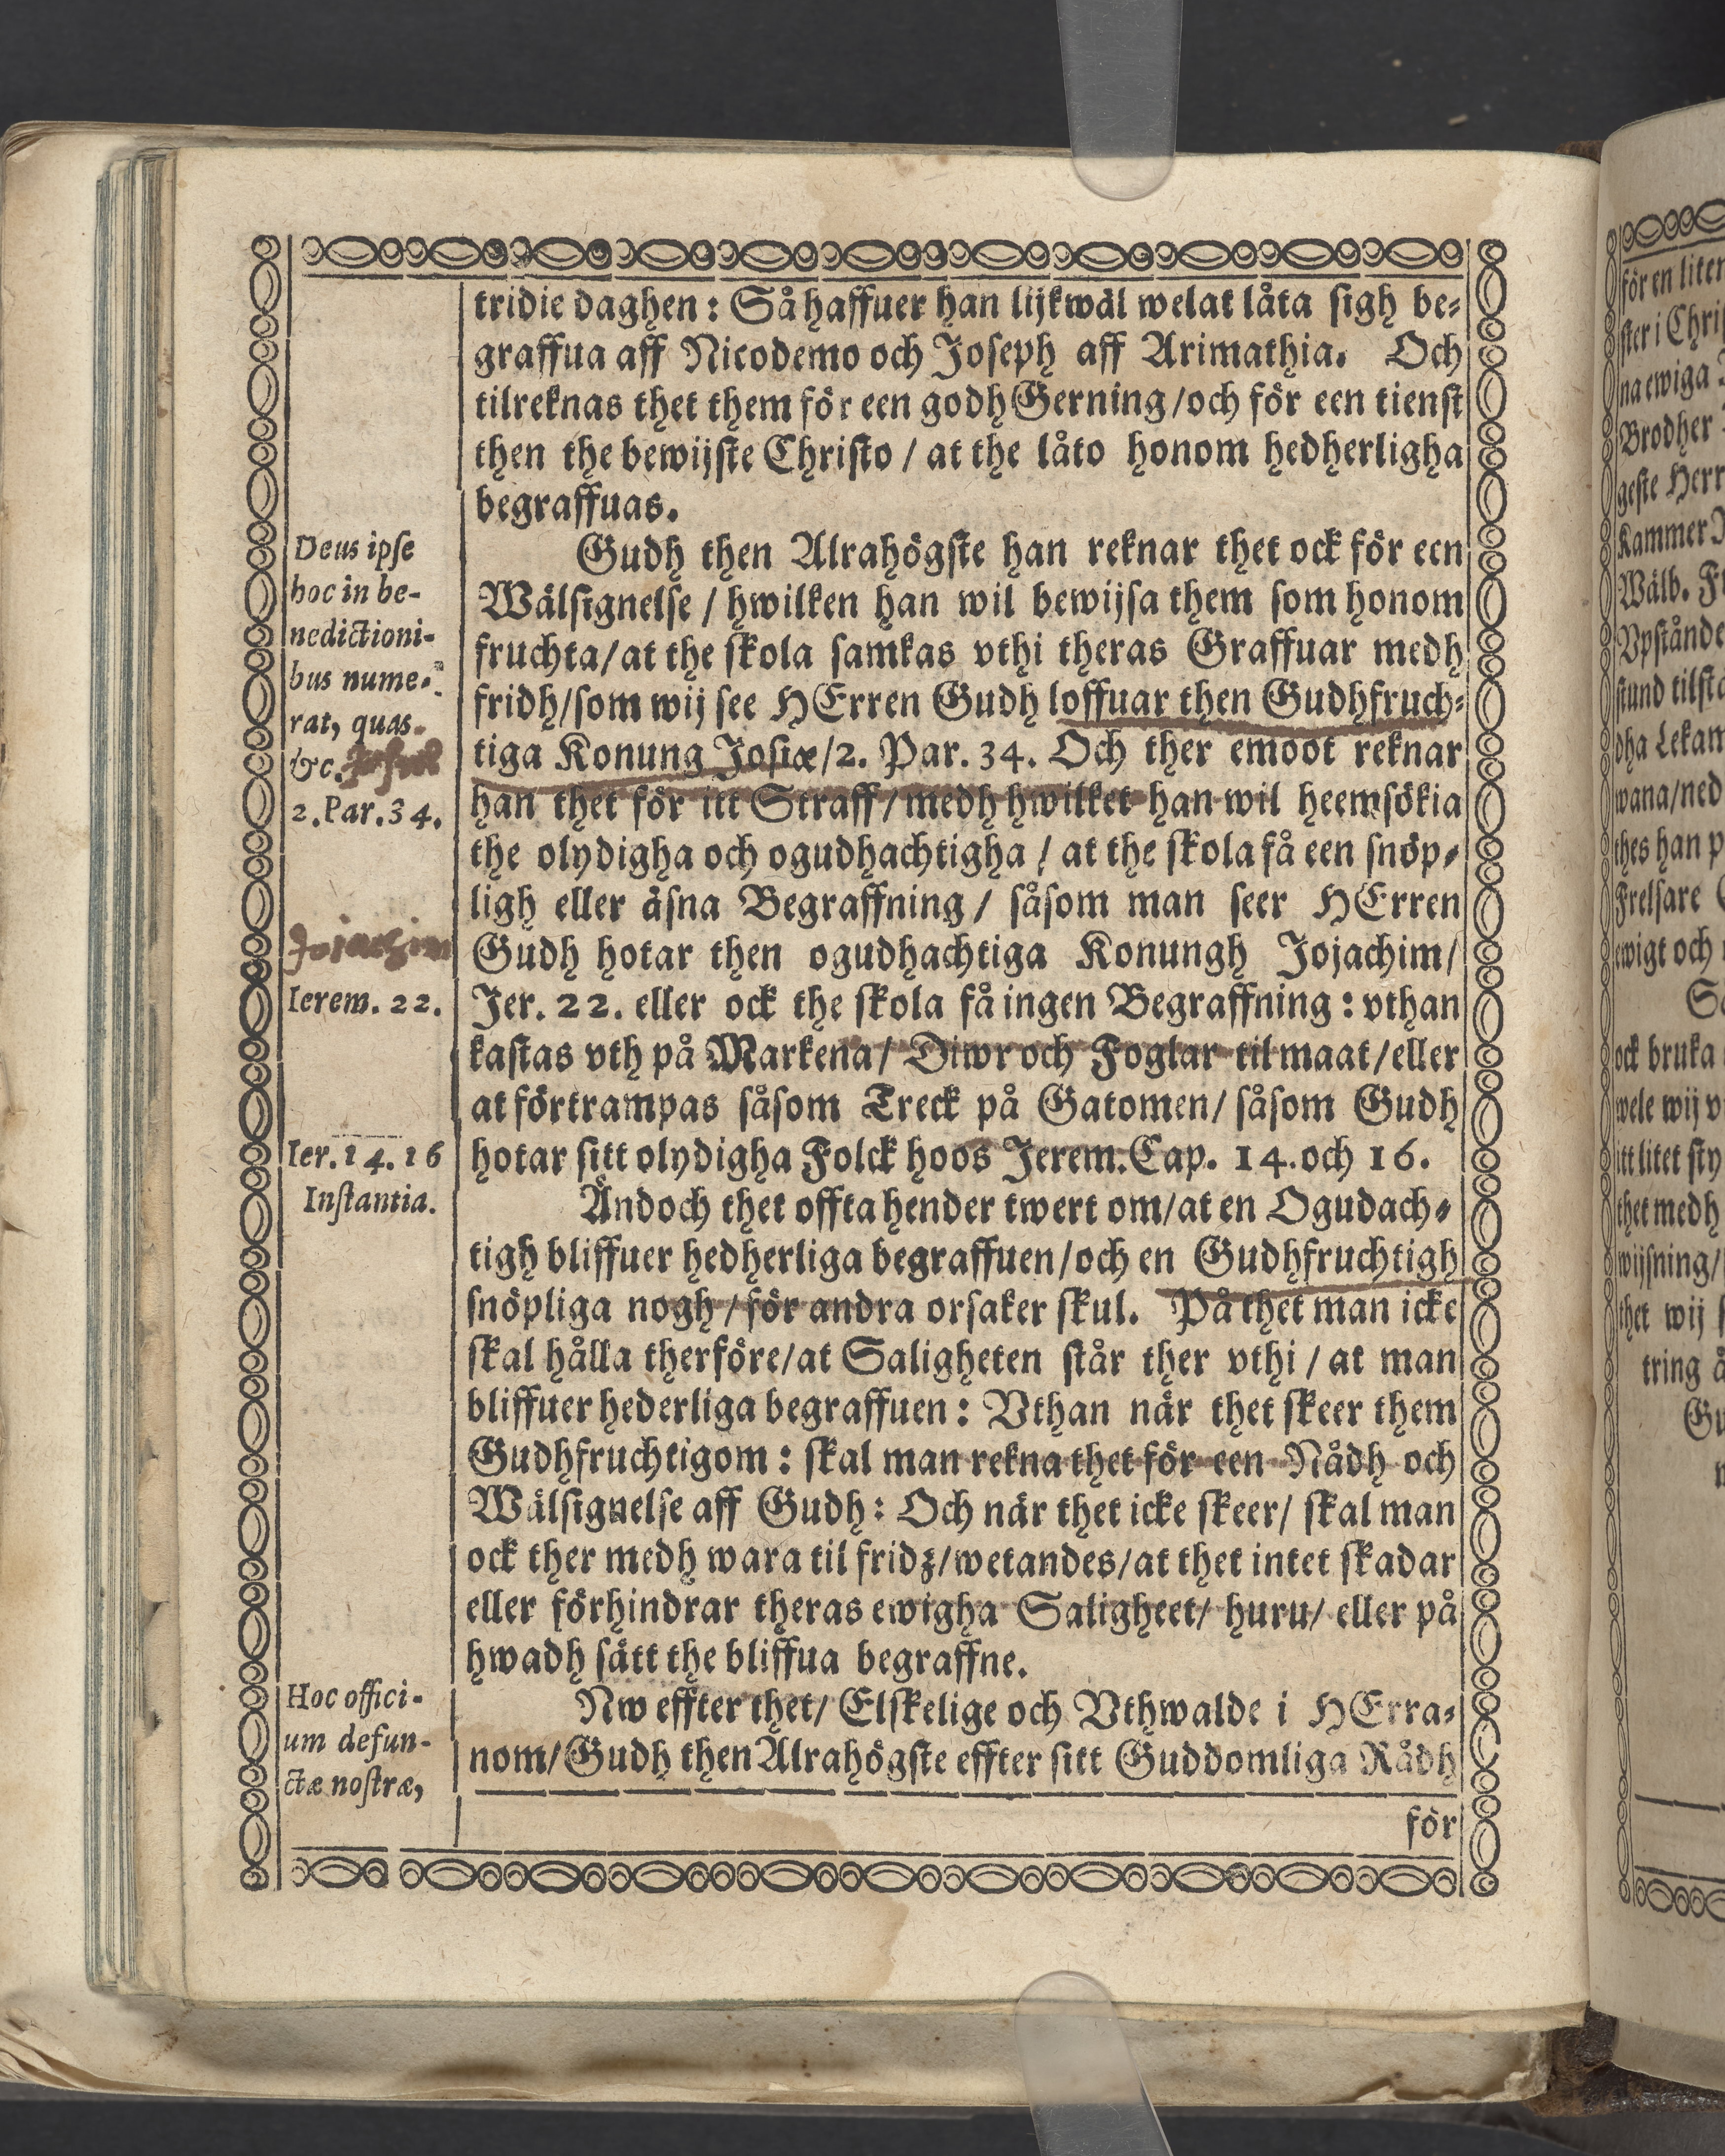 tridie daghen: Så haffuer han lijkwäl welat låta sigh be-
graffua aff Nicodemo och Joseph aff Arimathia. Och
tilreknas thet them för een godh Gerning/och för een tienst
then the bewijste Christo / at the låto honom hedherligha
begraffuas.
Deus ipse
hoc in be-
nedictioni-
bus nume-
rat, quas
&c.
2. Par. 34.
Gudh then Alrahögste han reknar thet ock för een
Wälsignelse / hwilken han wil bewijsa them som honom
fruchta/at the skola samkas vthi theras Graffuar medh
fridh/som wij see HErren Gudh loffuar then Gudhfruch-
tiga Konung Josiæ/2. Par. 34. Och ther emoot reknar
han thet för itt Straff/medh hwilket han wil heemsökia
the olydigha och ogudhachtigha / at the skola få een snöp-
ligh eller äsna Begraffning / såsom man seer HErren
Jojachim
Gudh hotar then ogudhachtiga Konungh Jojachim/
Ierem. 22.
Jer. 22. eller ock the skola få ingen Begraffning: vthan
kastas vth på Markena/ Diwr och Foglar til maat/eller
at förtrampas såsom Treck på Gatomen/ såsom Gudh
Ier. 14. 16
hotar sitt olydigha Folck hoos Jerem. Cap. 14. och 16.
Instantia.
Ändoch thet offta hender twert om/at en Ogudach-
tigh bliffuer hedherliga begraffuen/och en Gudhfruchtigh
snöpliga nogh / för andra orsaker skul. På thet man icke
skal hålla therföre/at Saligheten står ther vthi / at man
bliffuer hederliga begraffuen: Vthan när thet skeer them
Gudhfruchtigom: skal man rekna thet för een Nådh och
Wälsignelse aff Gudh: Och när thet icke skeer/ skal man
ock ther medh wara til fridz/wetandes/at thet intet skadar
eller förhindrar theras ewigha Saligheet/ huru/ eller på
hwadh sätt the bliffua begraffne.
Hoc offici-
um defun-
ctæ nostræ,
Nw effter thet/ Elskelige och Vthwalde i HErra-
nom/Gudh then Alrahögste effter sitt Guddomliga Rådh
för
för en liten
ster i Chri
na ewiga
Brodher
geste Herr
Kammer
Wälb.
Vpstånde
stund tilsta
dha Lekam
wana/ned
thes han p
Frelsare
ewigt och
ock bruka
wele wij v
itt litet sty
thet medh
wijsning/
thet wij
tring